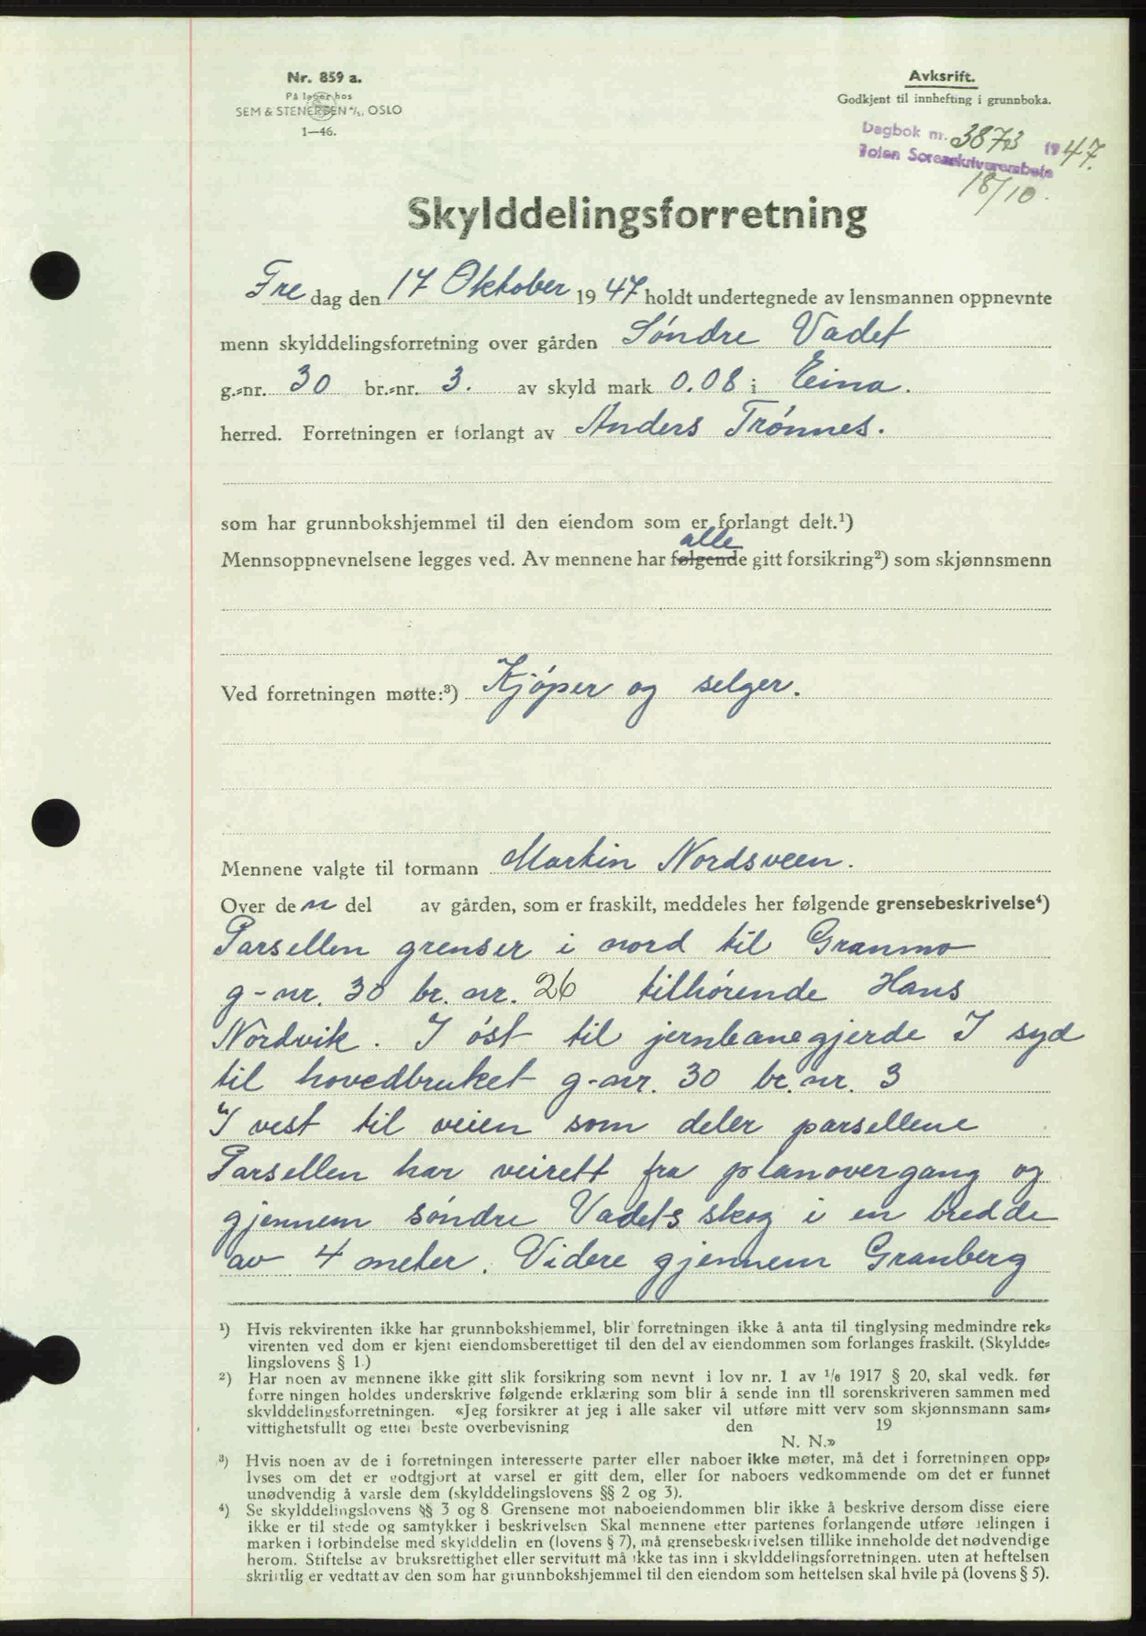 Nr. 859 a.
På lager hos
SEM & STENERSEN A/S, OSLO
1—46.
Avksrift.
Godkjent til innhefting i grunnboka.
Dagbok nr. 3873 1947.
Toten Sorenskriverembete
18/10.
Skylddelingsforretning
Fredag den 17 Oktober 1947 holdt undertegnede av lensmannen oppnevnte
menn skylddelingsforretning over gården Søndre Vadet
g.-nr. 30 br.-nr. 3. av skyld mark 0.08 i Eina.
herred. Forretningen er forlangt av Anders Trønnes.
som har grunnbokshjemmel til den eiendom som er forlangt delt.¹)
alle
Mennsoppnevnelsene legges ved. Av mennene har følgende gitt forsikring²) som skjønnsmenn
Ved forretningen møtte:³) Kjøper og selger.
Mennene valgte til formann Martin Nordsveen.
Over den del av gården, som er fraskilt, meddeles her følgende grensebeskrivelse⁴)
Parsellen grenser i nord til Granmo
g-nr. 30 br. nr. 26 tilhørende Hans
Nordvik. I øst til jernbanegjerde I syd
til hovedbruket g-nr. 30 br. nr. 3
I vest til veien som deler parsellene
Parsellen har veirett fra planovergang og
gjennem søndre Vadets skog i en bredde
av 4 meter. Videre gjennem Granberg
¹) Hvis rekvirenten ikke har grunnbokshjemmel, blir forretningen ikke å anta til tinglysing medmindre rek-
virenten ved dom er kjent eiendomsberettiget til den del av eiendommen som forlanges fraskilt. (Skyldde-
lingslovens § 1.)
²) Har noen av mennene ikke gitt slik forsikring som nevnt i lov nr. 1 av 1/6 1917 § 20, skal vedk. før
forre ningen holdes underskrive følgende erklæring som blir å sende inn til sorenskriveren sammen med
skylddelingsforretningen. «Jeg forsikrer at jeg i alle saker vil utføre mitt verv som skjønnsmann sam-
vittighetsfullt og etter beste overbevisning den 19
N. N.»
³) Hvis noen av de i forretningen interesserte parter eller naboer ikke møter, må det i forretningen opp-
lyses om det er godtgjort at varsel er gitt dem, eller for naboers vedkommende om det er funnet
unødvendig å varsle dem (skylddelingslovens §§ 2 og 3).
⁴) Se skylddelingslovens §§ 3 og 8. Grensene mot naboeiendommen blir ikke å beskrive dersom disse eiere
ikke er til stede og samtykker i beskrivelsen Skal mennene etter partenes forlangende utføre delingen i
marken i forbindelse med skylddelin en (lovens § 7), må grensebeskrivelsen tillike inneholde det nødvendige
herom. Stiftelse av bruksrettighet eller servitutt må ikke tas inn i skylddelingsforretningen. uten at heftelsen
skriftlig er vedtatt av den som har grunnbokshjemmel til den eiendom som heftelsen skal hvile på (lovens § 5).